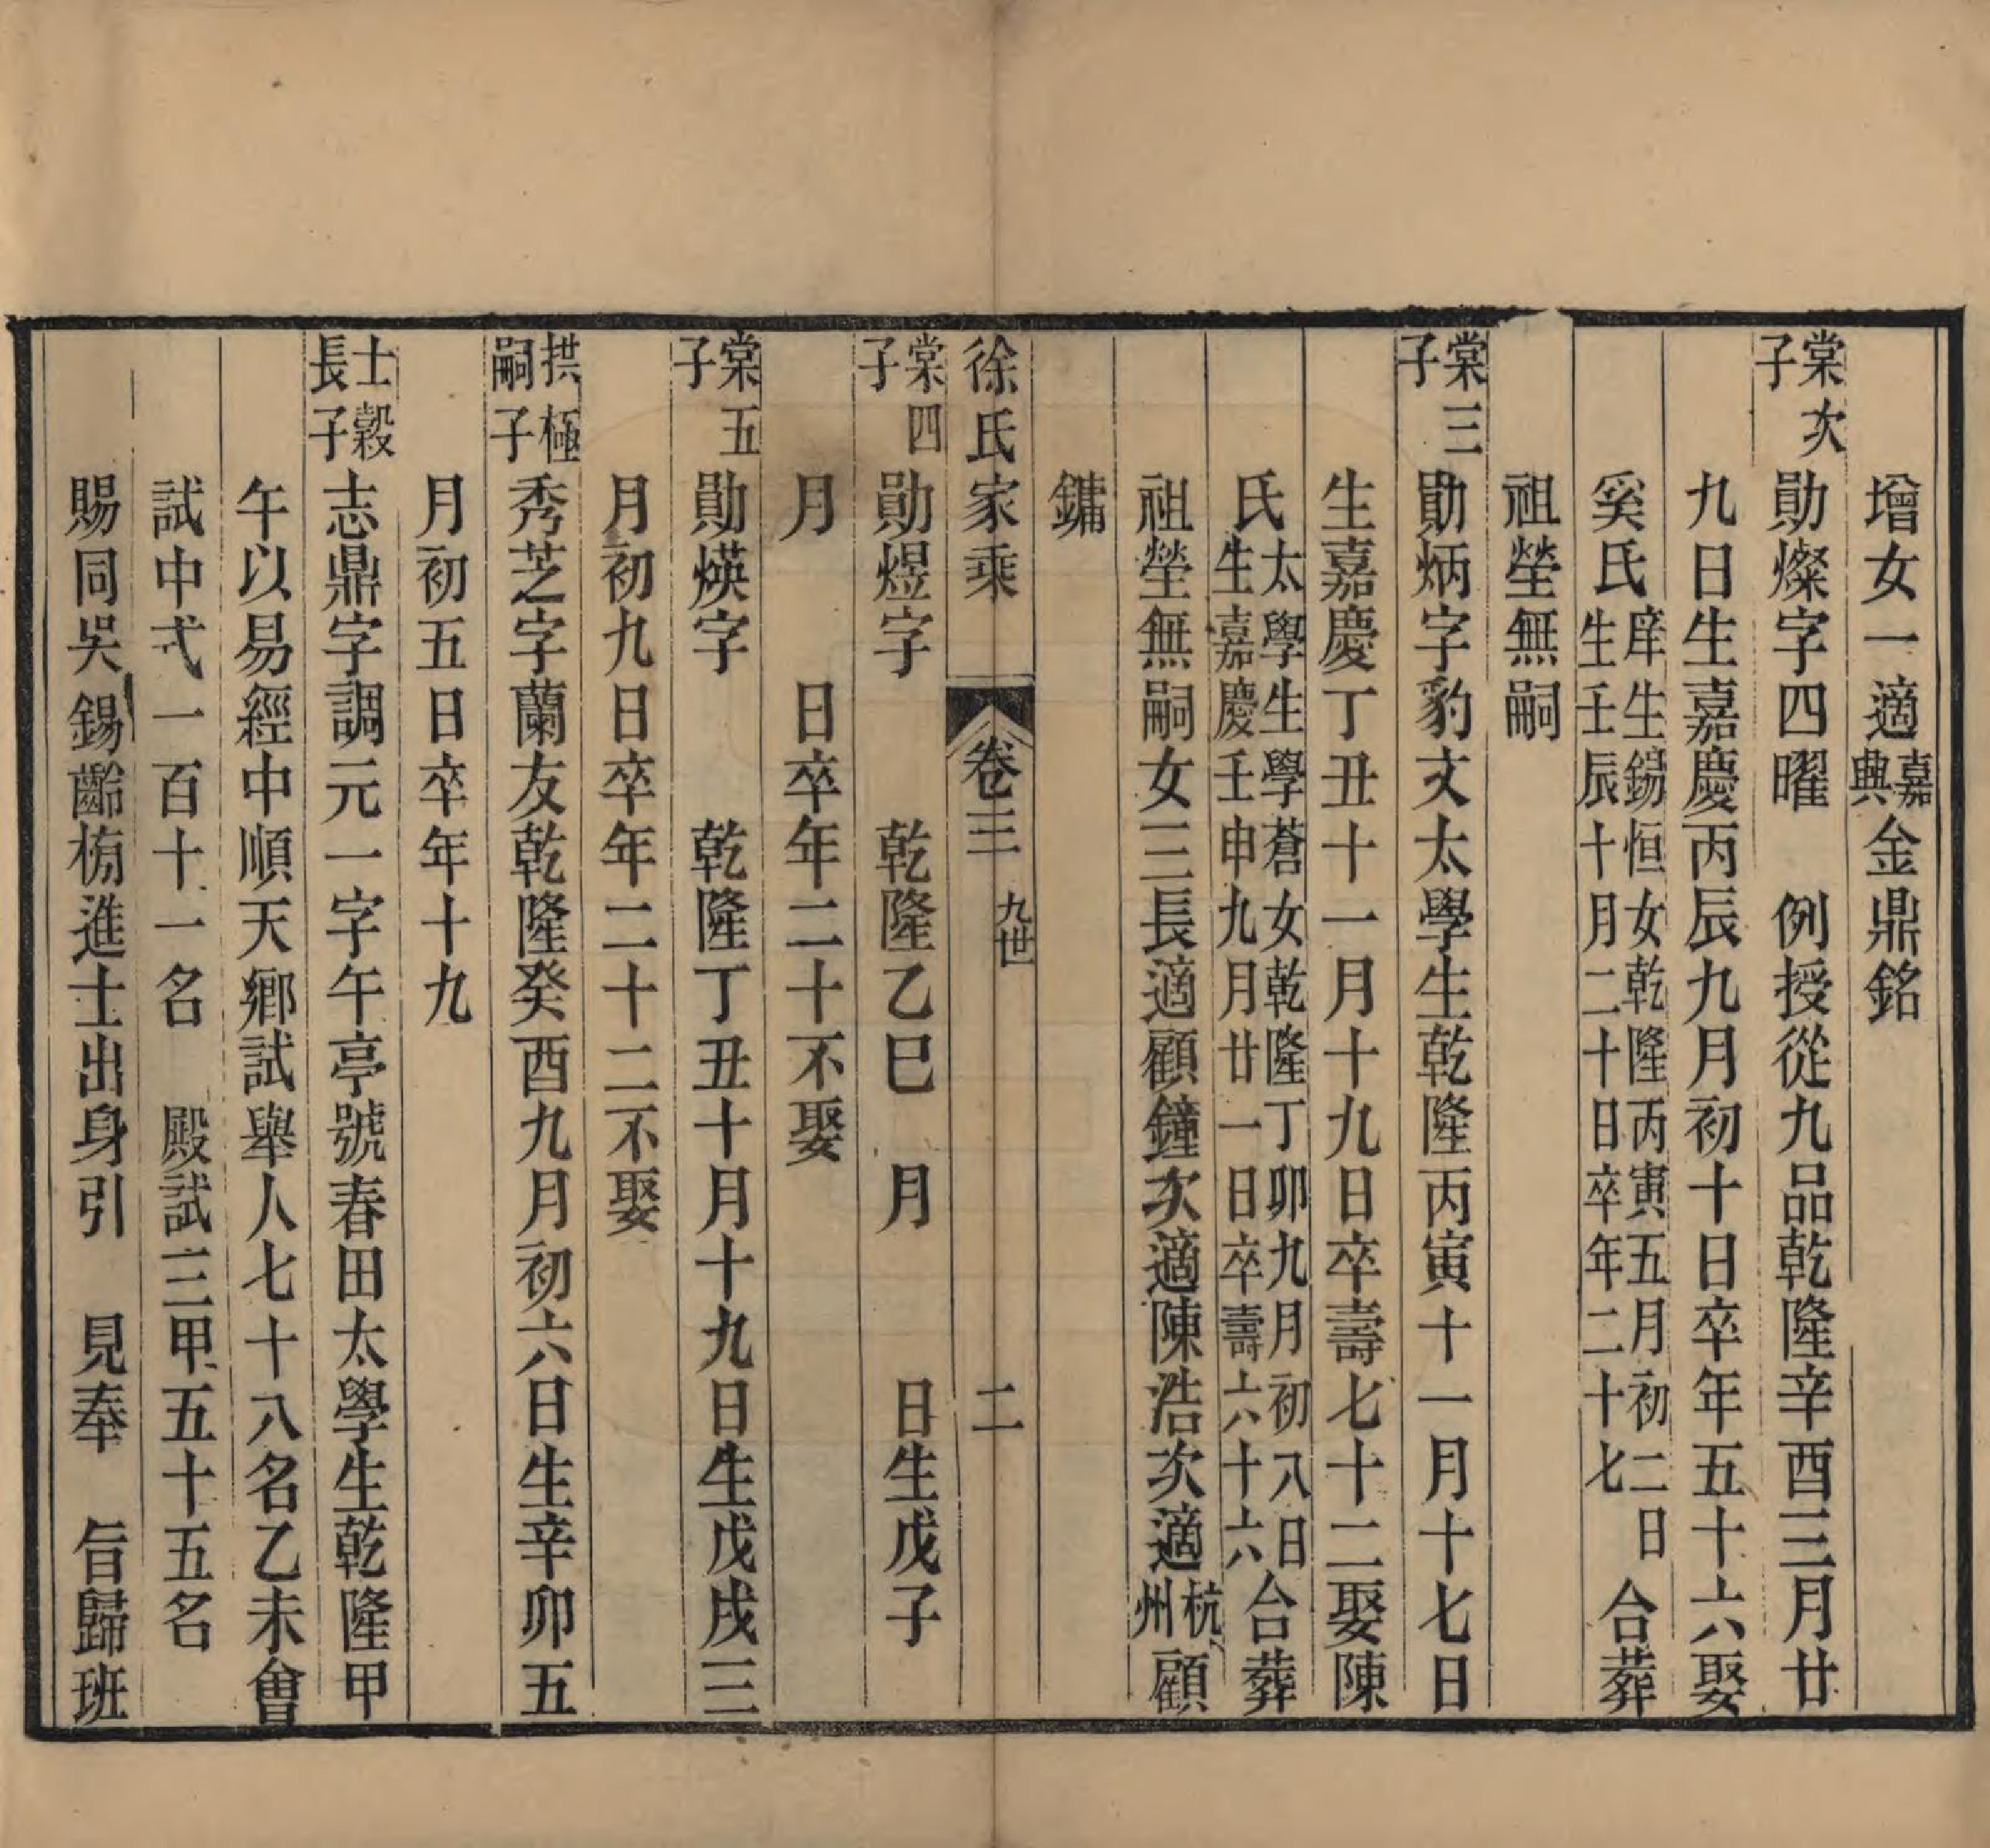 增女一適嘉典金鼎銘
棠次子勛燦字四曜　例授從九品乾隆辛酉三月廿
九日生嘉慶丙辰九月初十日卒年五十六娶
奚氏庠生錫恒女乾隆丙寅五月初二日生壬辰十月二十日卒年二十七合葬
祖塋無嗣
棠三子勛炳字豹文太學生乾隆丙寅十一月十七日
生嘉慶丁丑十一月十九日卒壽七十二娶陳
氏太學生學蒼女乾隆丁卯九月初八日生嘉慶壬申九月廿一日卒壽六十六合葬
祖塋無嗣女三長適顧鐘次適陳浩次適杭州顧
鏞
徐氏家乘　卷三　九世　二
棠四子勛煜字　　乾隆乙巳　月　　日生戊子
月　　日卒年二十不娶
棠五子勛煐字　　乾隆丁丑十月十九日生戊戌三
月初九日卒年二十二不娶
拱極嗣子秀芝字蘭友乾隆癸酉九月初六日生辛卯五
月初五日卒年十九
士穀長子志鼎字調元一字午亭號春田太學生乾隆甲
午以易經中順天鄉試舉人七十八名乙未會
試中式一百十一名　殿試三甲五十五名
賜同吳錫齡榜進士出身引　見奉　旨歸班